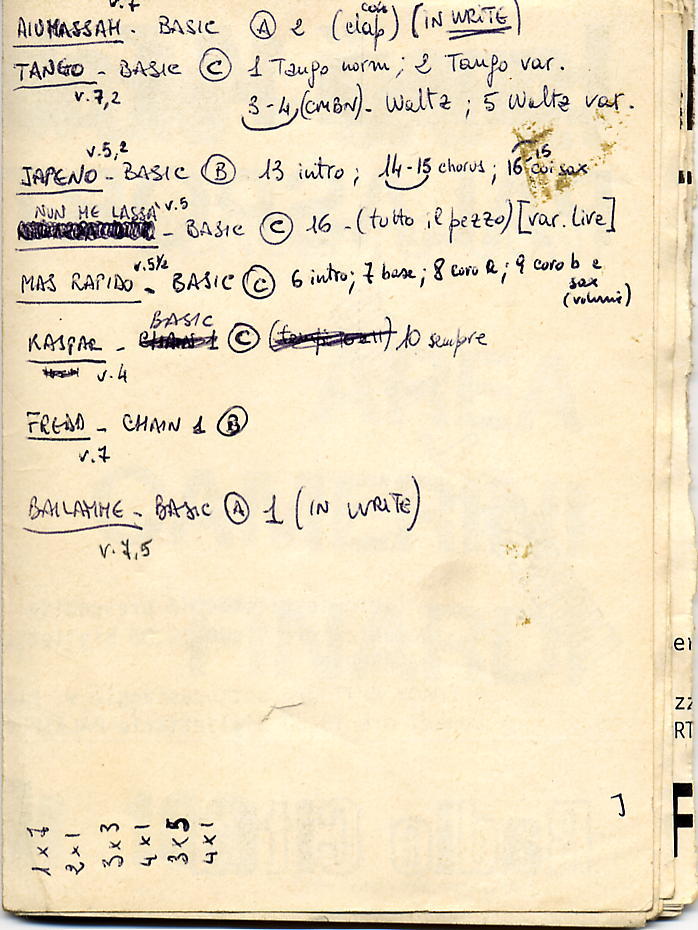 v.7
AIUMASSAH. BASIC (A) 2 (clap) (IN WRITE)
TANGO - BASIC (C) 1 Tango norm; 2 Tango var.
v.7,2
3-4 (CMBN) - Waltz; 5 Waltz var.
v.5,2
JAPENO - BASIC (B) 13 intro; 14-15 chorus; 16-15 coi sax
NUN ME LASSA' v.5
- BASIC (C) 16 - (tutto il pezzo) [var. live]
MAS RAPIDO - v.5½ BASIC (C) 6 intro; 7 base; 8 coro a; 9 coro b e
sax
(volume)
BASIC
KASPAR - CHAIN 1 (C) 10 sempre
v.4
FREDD - CHAIN 1 (B)
v.7
BAILAMME - BASIC (A) 1 (IN WRITE)
v.7,5
1x7
2x1
3x3
4x1
3x5
4x1
er
zz
RT
F